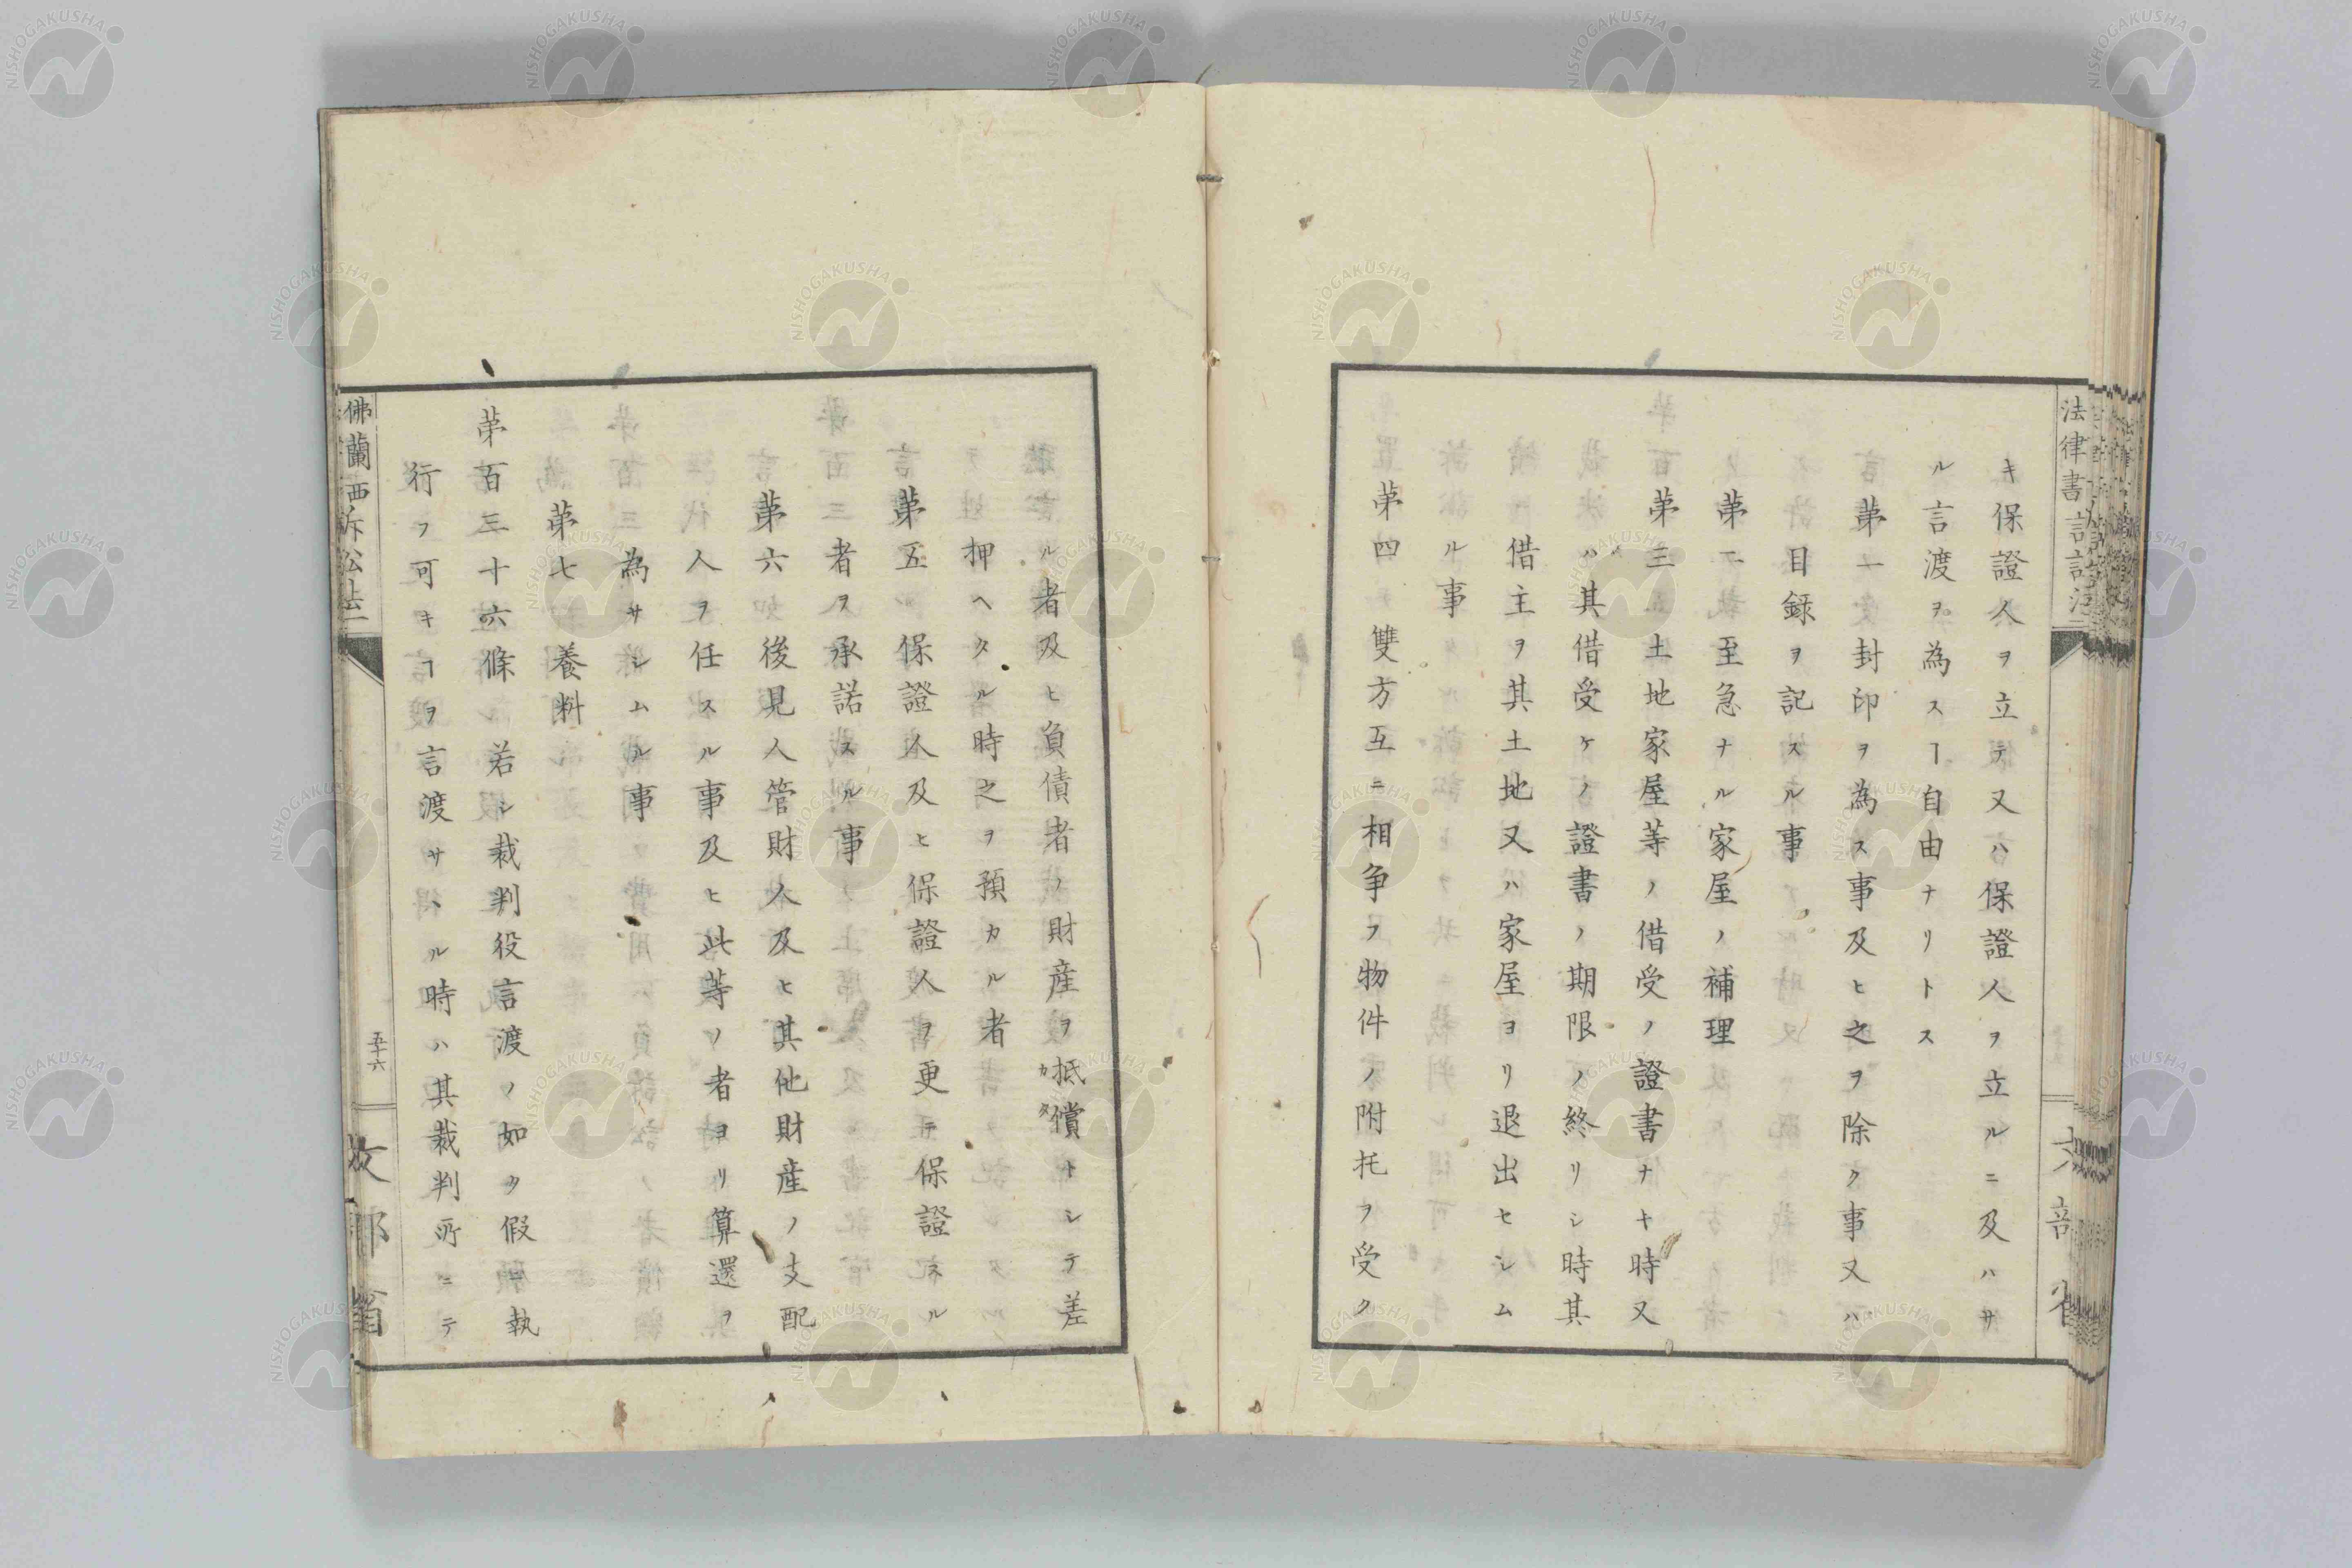 キ保證人ヲ立テ又ハ保證人ヲ立ルニ及ハサ
ル言渡ヲ為スヿ自由ナリトス
第一 封印ヲ為ス事及ヒ之ヲ除ク事又ハ
目録ヲ記スル事
第二 至急ナル家屋ノ補理
第三 土地家屋等ノ借受ノ證書ナキ時又
ハ其借受ケノ證書ノ期限ノ終リシ時其
借主ヲ其土地又ハ家屋ヨリ退出セシム
ル事
第四 雙方互ニ相争フ物件ノ附托ヲ受ク
ル者及ヒ負債者ノ財産ヲ抵償トシテ差
カタ
押ヘタル時之ヲ預カル者
第五 保證人及ヒ保證人ヲ更テ保證スル
者ヲ承諾スル事
第六 後見人管財人及ヒ其他財産ノ支配
人ヲ任スル事及ヒ此等ノ者ヨリ算還ヲ
為サシムル事
第七 養料
第百三十六條 若シ裁判役言渡ノ如ク假ニ執
行フ可キヿヲ言渡サヽル時ハ其裁判所ニテ
佛蘭西訴訟法一
五十六
法律書